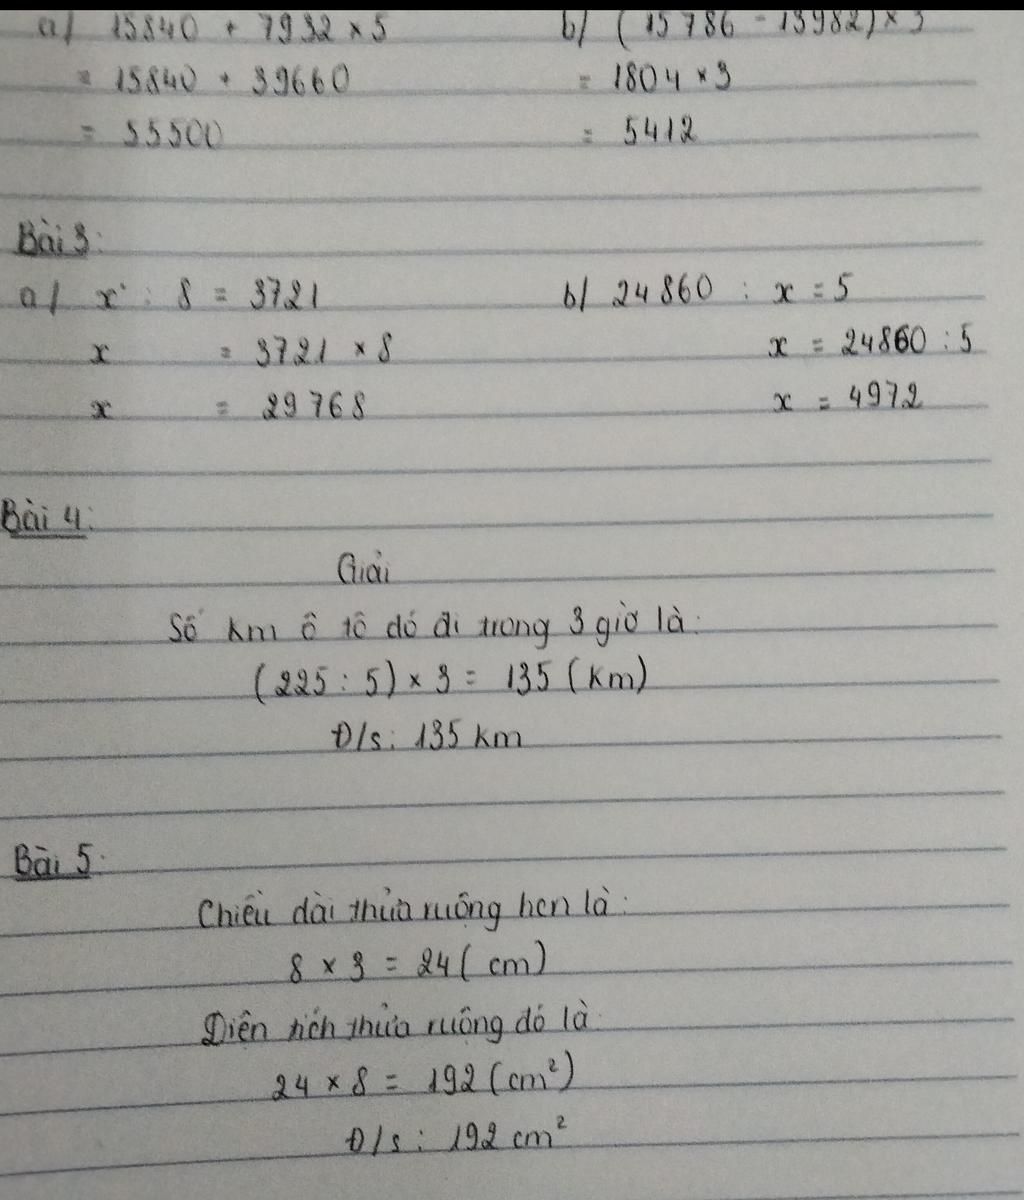 a/ 15840 + 7932 × 5
b/ (15786 - 13982) × 3
= 15840 + 39660
= 1804 × 3
= 55500
= 5412
Bài 3:
a/ x : 8 = 3721
b/ 24860 : x = 5
x = 3721 × 8
x = 24860 : 5
x = 29768
x = 4972
Bài 4:
Giải
Số km ô tô đó đi trong 3 giờ là:
(225 : 5) × 3 = 135 (km)
Đ/s: 135 km
Bài 5:
Chiều dài thửa ruộng hcn là:
8 × 3 = 24 (cm)
Diện tích thửa ruộng đó là
24 × 8 = 192 (cm²)
Đ/s: 192 cm²